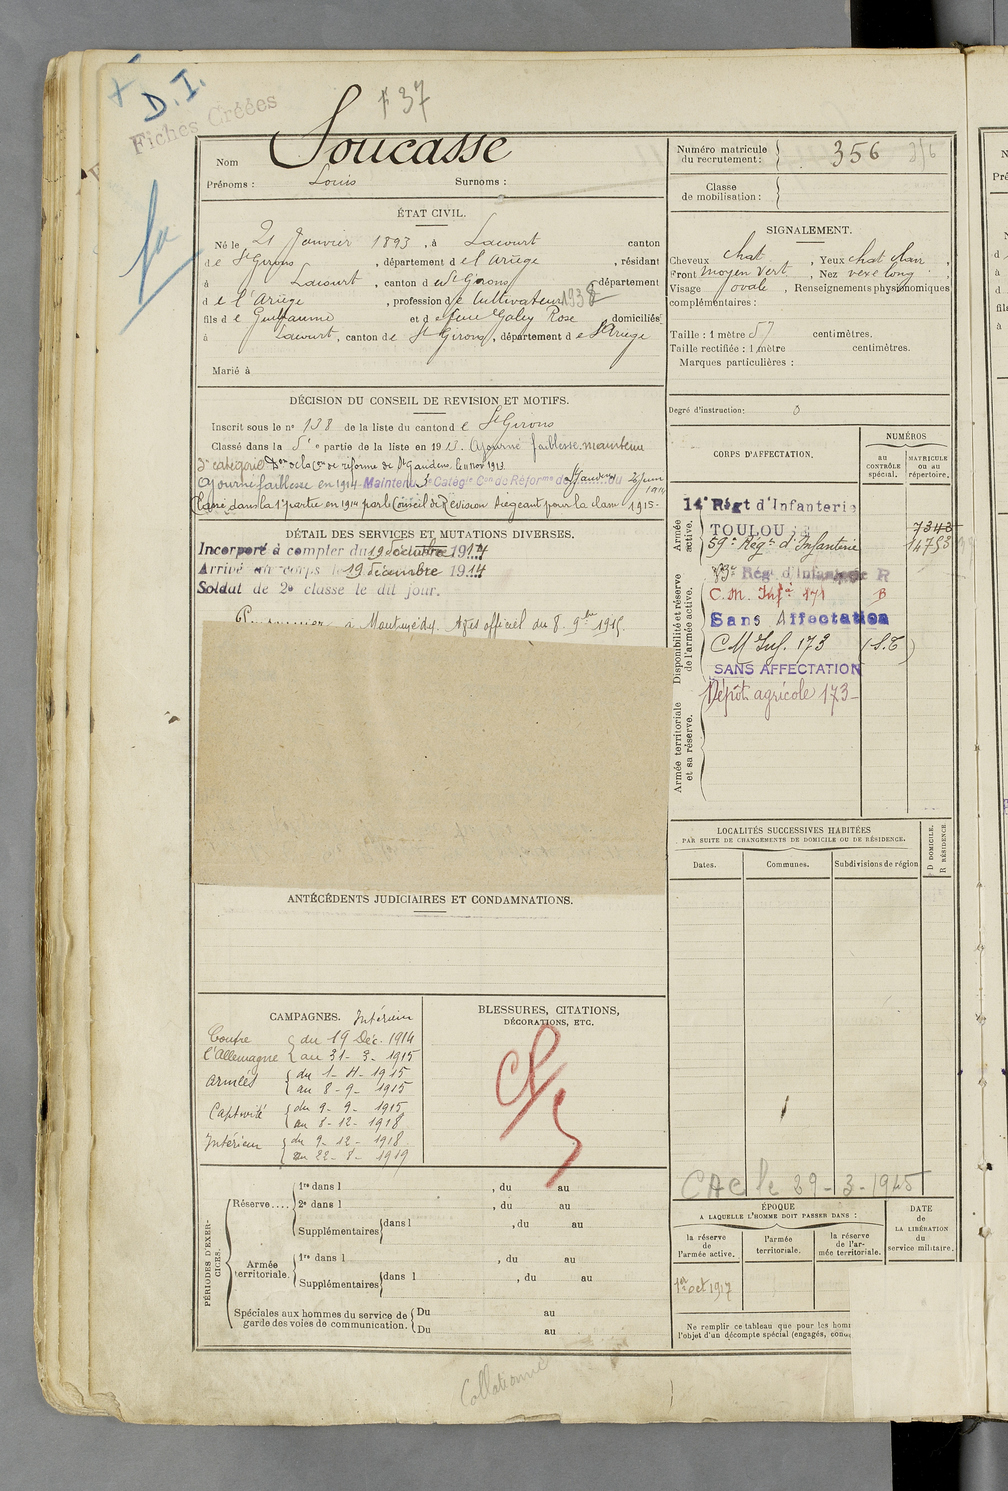 D.I.
Fiches Créées
37
Nom Soucasse
Prénoms : Louis Surnoms :
Numéro matricule du recrutement : 356
Classe de mobilisation :
ÉTAT CIVIL.
Né le 21 Janvier 1893, à Lacourt canton
de St Girons, département de l'Ariège, résidant
à Lacourt, canton de St Girons, département
de l'Ariège, profession de Cultivateur 1938
fils de Guillaume et de feue Galey Rose domiciliés
à Lacourt, canton de St Girons, département de l'Ariège
Marié à
SIGNALEMENT.
Cheveux chat, Yeux chat clair,
Front moyen vert, Nez vexe long,
Visage ovale, Renseignements physionomiques
complémentaires :
Taille : 1 mètre 57 centimètres.
Taille rectifiée : 1 mètre centimètres.
Marques particulières :
Degré d'instruction : 3
DÉCISION DU CONSEIL DE REVISION ET MOTIFS.
Inscrit sous le n° 138 de la liste du canton de St Girons
Classé dans la 5e partie de la liste en 1913. Ajourné faiblesse. maintenu
2e catégorie Don de la Con de réforme de St Gaudens, le nov 1913
ajourné faiblesse en 1914 Maintenu Catégie Con de Réforme de St Gaudens du 2 Juin
Classé dans la 1re partie en 1914 par le Conseil de Révision siégeant pour la classe 1915.
DÉTAIL DES SERVICES ET MUTATIONS DIVERSES.
Incorporé à compter du 19 décembre 1914
Arrivé au corps le 19 décembre 1914
Soldat de 2e classe le dit jour.
Prisonnier à Montmédy. Avis officiel du 8. 9bre 1915.
CORPS D'AFFECTATION.
NUMÉROS
au contrôle spécial.
MATRICULE ou au répertoire.
Armée active.
14e Régt d'Infanterie
TOULOU 7343
59e Régt d'Infanterie 14753
Disponibilité et réserve de l'armée active.
Régt d'Infanterie R
C.M. Infie 171 B
Sans Affectation
CM Inf. 173 (S.T)
SANS AFFECTATION
Armée territoriale et sa réserve.
Dépôt agricole 173
LOCALITÉS SUCCESSIVES HABITÉES
PAR SUITE DE CHANGEMENTS DE DOMICILE OU DE RÉSIDENCE.
Dates. Communes. Subdivisions de région
D DOMICILE. R RÉSIDENCE
ANTÉCÉDENTS JUDICIAIRES ET CONDAMNATIONS.
CAMPAGNES. Intérieur
Contre l'Allemagne du 19 Déc. 1914
au 31- 3- 1915
Armées du 1- 4- 1915
au 8- 9- 1915
Captivité du 9- 9- 1915
au 8- 12- 1918
Intérieur du 9- 12- 1918
au 22- 8- 1919
BLESSURES, CITATIONS,
DÉCORATIONS, ETC.
CAC le 29-3-1945
PÉRIODES D'EXERCICES.
Réserve....
1re dans l , du au
2e dans l , du au
Supplémentaires dans l , du au
Armée territoriale.
1re dans l , du au
Supplémentaires dans l , du au
Spéciales aux hommes du service de garde des voies de communication.
Du au
Du au
ÉPOQUE
A LAQUELLE L'HOMME DOIT PASSER DANS :
la réserve de l'armée active.
l'armée territoriale.
la réserve de l'armée territoriale.
DATE de LA LIBÉRATION du service militaire.
1er oct 1917
Ne remplir ce tableau que pour les hom
l'objet d'un décompte spécial (engagés,
Collationné